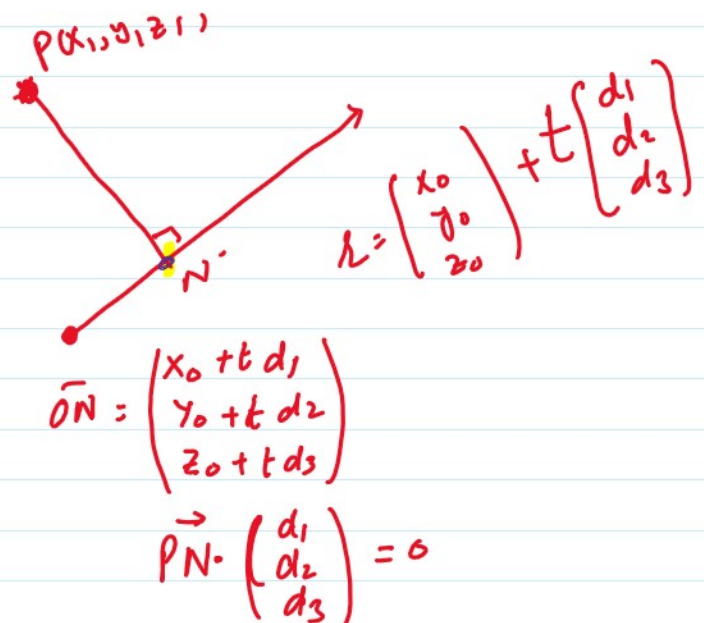 P(x₁,y₁z₁)
r = (x₀ y₀ z₀) + t (d₁ d₂ d₃)
N
ON = (x₀ + t d₁
y₀ + t d₂
z₀ + t d₃)
PN · (d₁ d₂ d₃) = 0